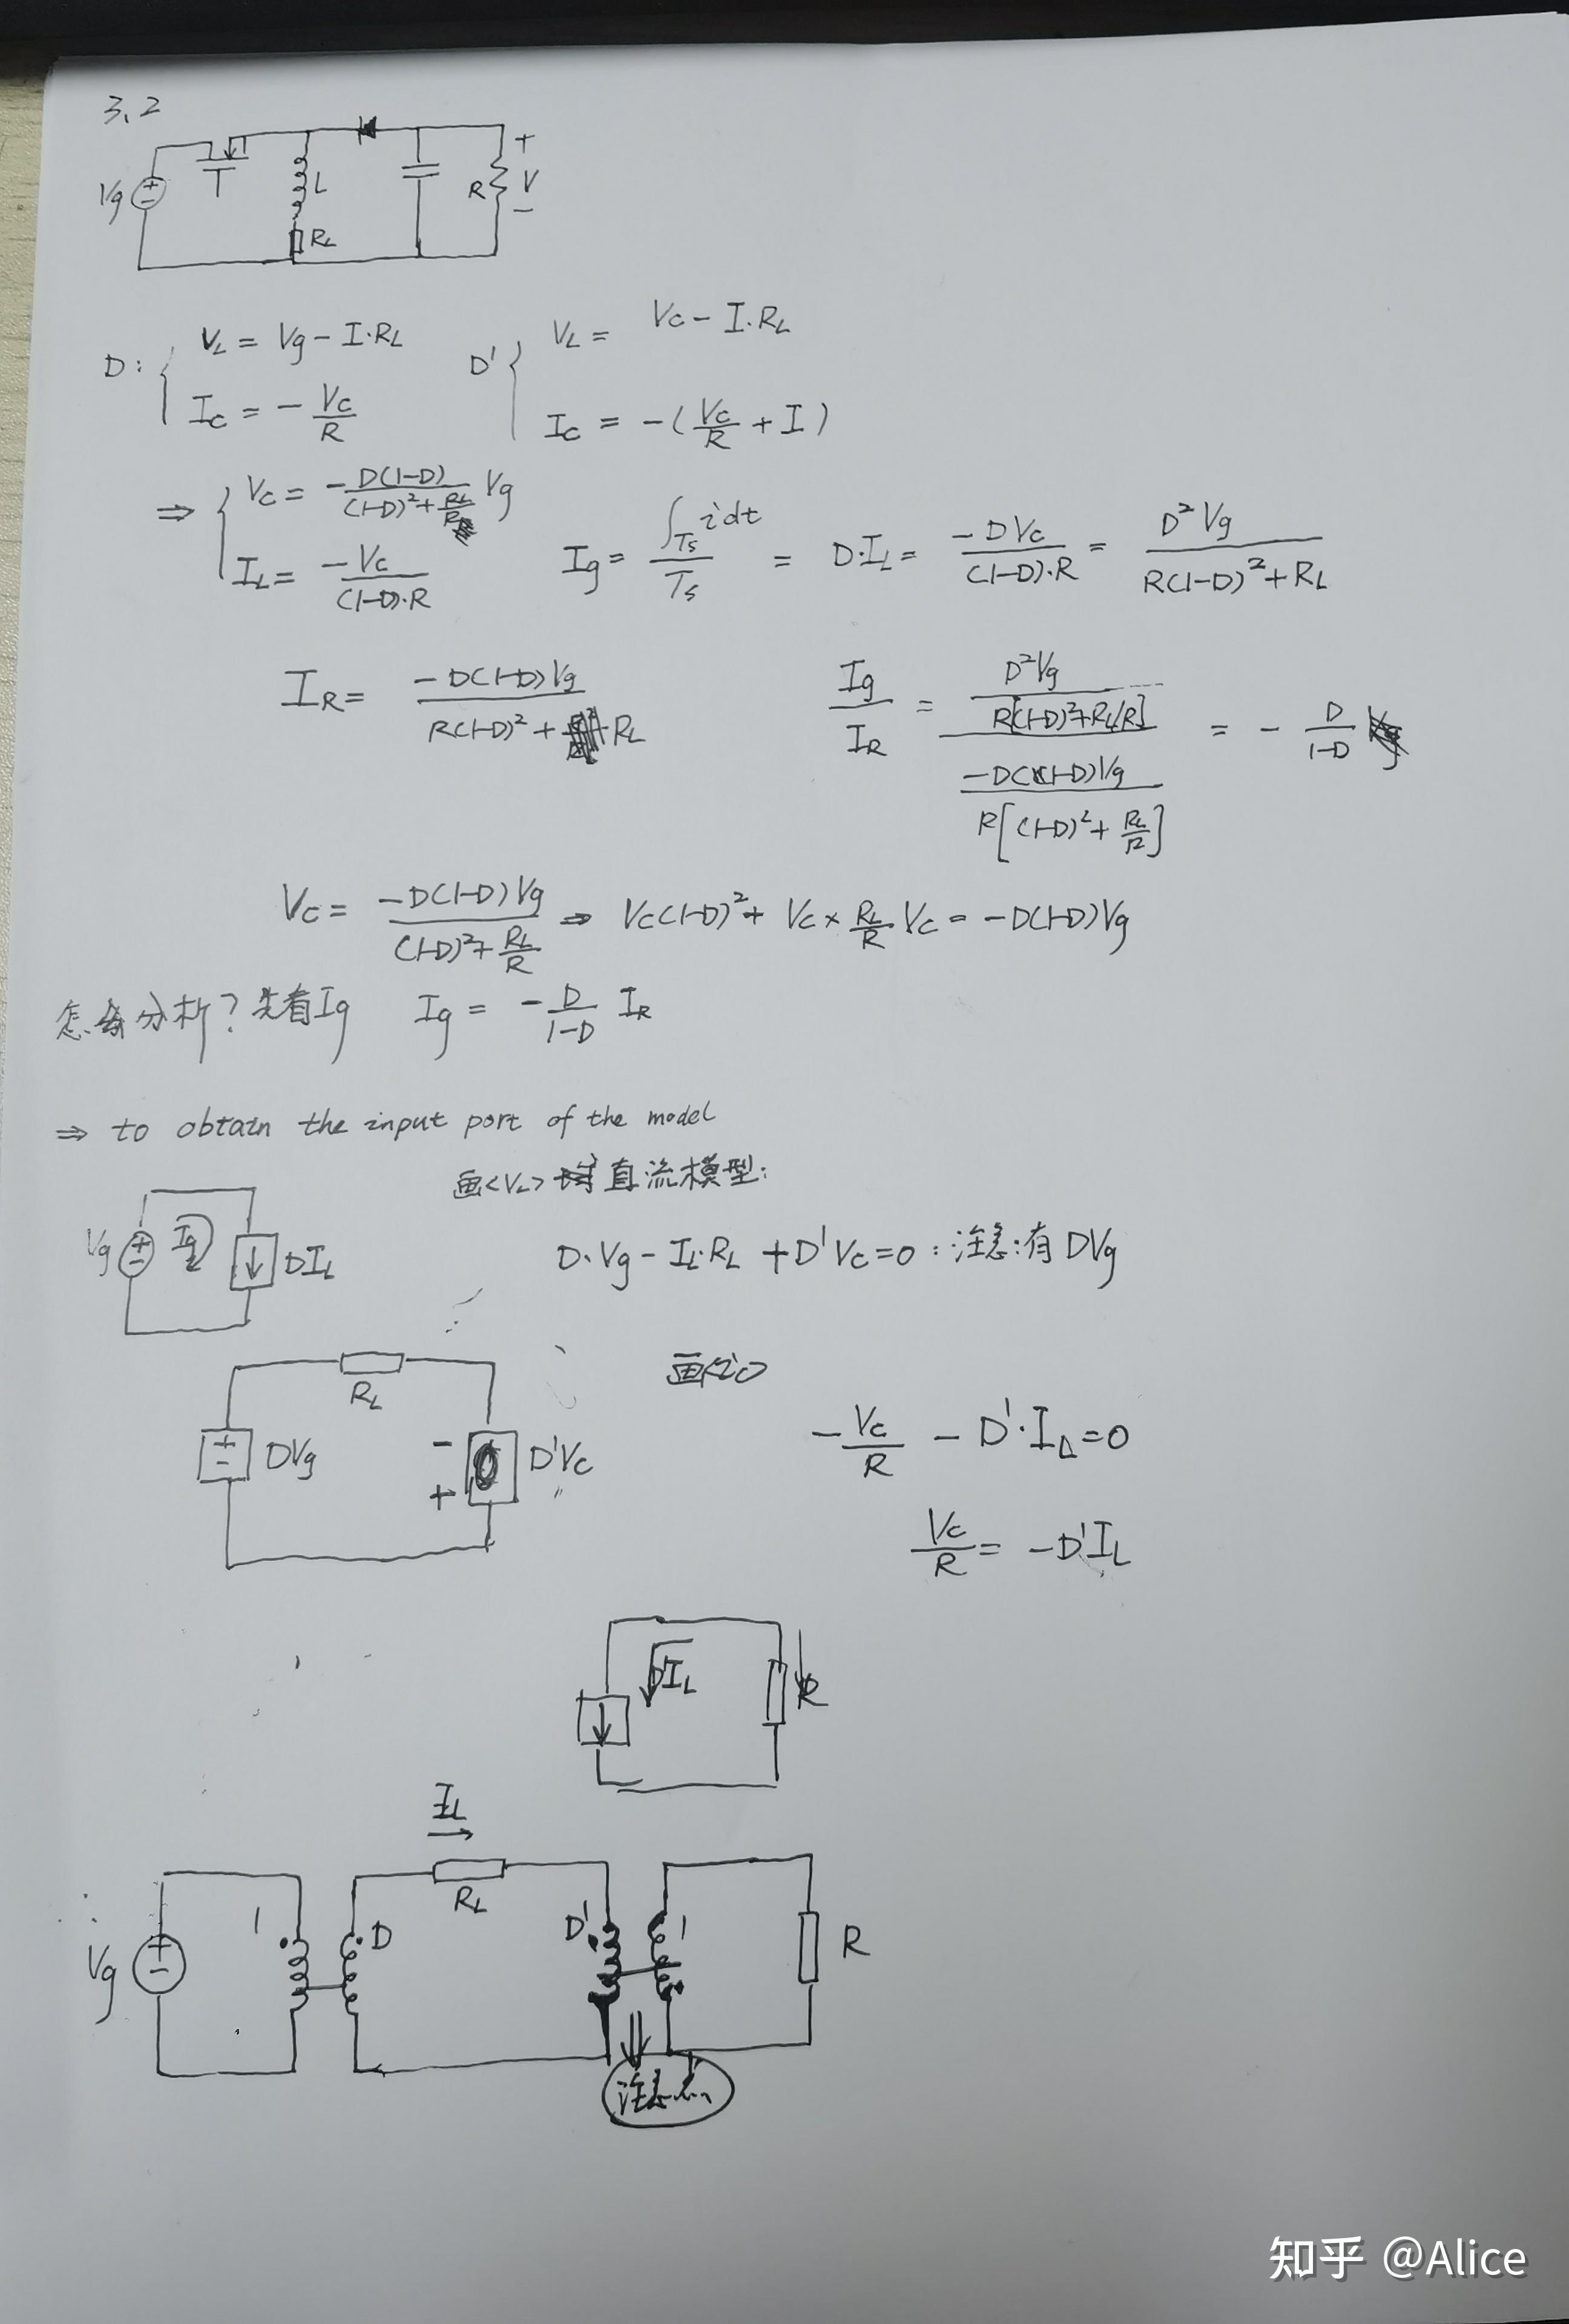 3.2
Vg T L RL R + V −
D: { VL = Vg − I·RL D' { VL = Vc − I·RL
Ic = − Vc/R Ic = −(Vc/R + I)
⇒ { Vc = −D(1−D)/((1−D)²+RL/R) Vg
IL = −Vc/((1−D)·R) Ig = ∫Ts i dt/Ts = D·IL = −DVc/((1−D)·R) = D²Vg/(R(1−D)²+RL)
IR = −D(1−D)Vg/(R(1−D)²+RL) Ig/IR = (D²Vg/(R[(1−D)²+RL/R]))/(−D(1−D)Vg/(R[(1−D)²+RL/R])) = − D/(1−D)
Vc = −D(1−D)Vg/((1−D)²+RL/R) ⇒ Vc(1−D)² + Vc × RL/R Vc = −D(1−D)Vg
怎么分析？先看Ig Ig = − D/(1−D) IR
⇒ to obtain the input port of the model
画<VL> 直流模型:
Vg Ig DIL
D·Vg − IL·RL + D'Vc = 0 : 注意:有DVg
RL
DVg − + D'Vc
画<ic>
− Vc/R − D'·IL = 0
Vc/R = −D'IL
D'IL R
IL
Vg 1 D RL D' 1 R
注意点
知乎 @Alice